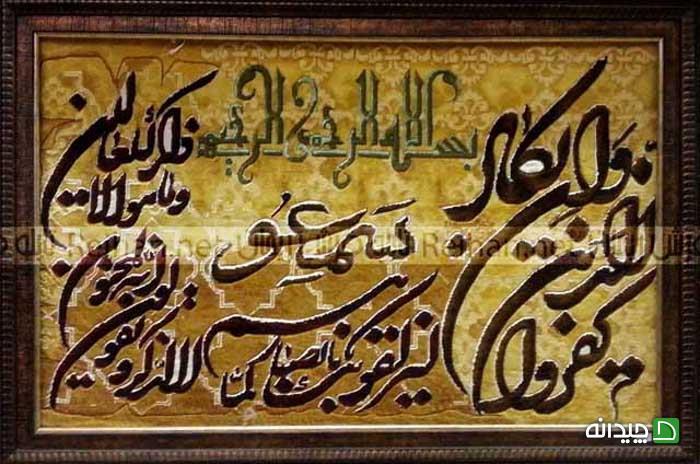 بسم الله الرحمن الرحیم
وان یکاد
الذین
کفروا
لیزلقونک بابصارهم لما
سمعوا
الذکر و یقولون
انه لمجنون
و ما هو الا
ذکر للعالمین
Reihan.net
چیدانه